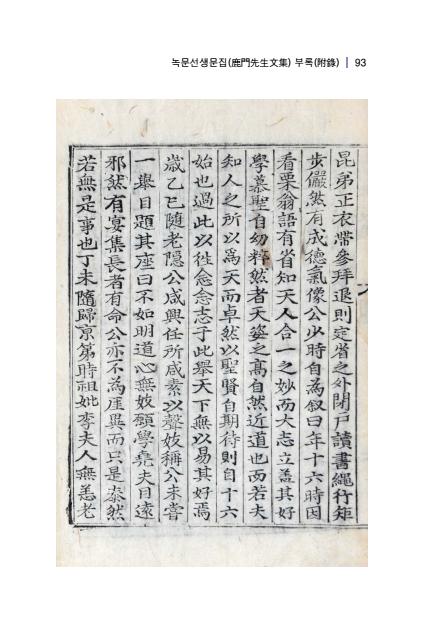 녹문선생문집(鹿門先生文集) 부록(附錄) | 93
昆弟正衣帶參拜退則定省之外閉戶讀書繩行矩
步儼然有成德氣像公少時自為叙曰年十六時因
看栗翁語有省知天人合一之妙而大志立盖其好
學慕聖自幼粹然者天姿之高自然近道也而若夫
知人之所以爲天而卓然以聖賢自期待則自十六
始也過此以徃念念志于此舉天下無以易其好焉
歲乙巳隨老隠公咸興任所咸素以聲妓稱公未嘗
一舉目題其座曰不如明道心無妓願學堯夫目遠
邪然有宴集長者有命公亦不為崖異而只是泰然
若無是事也丁未隨歸京第時祖妣李夫人無恙老